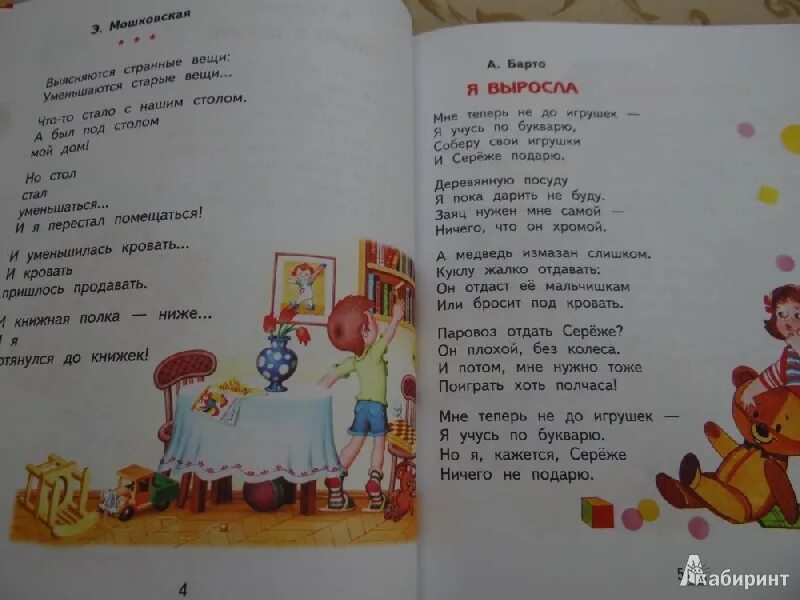 Э. Мошковская
* * *
Выясняются странные вещи:
Уменьшаются старые вещи...
Что-то стало с нашим столом.
А был под столом
мой дом!
Но стол
стал
уменьшаться...
И я перестал помещаться!
И уменьшилась кровать...
И кровать
пришлось продавать.
И книжная полка — ниже...
И я
отянулся до книжек!
4
А. Барто
Я ВЫРОСЛА
Мне теперь не до игрушек —
Я учусь по букварю,
Соберу свои игрушки
И Серёже подарю.
Деревянную посуду
Я пока дарить не буду.
Заяц нужен мне самой —
Ничего, что он хромой.
А медведь измазан слишком.
Куклу жалко отдавать:
Он отдаст её мальчишкам
Или бросит под кровать.
Паровоз отдать Серёже?
Он плохой, без колеса.
И потом, мне нужно тоже
Поиграть хоть полчаса!
Мне теперь не до игрушек —
Я учусь по букварю.
Но я, кажется, Серёже
Ничего не подарю.
5
Лабиринт